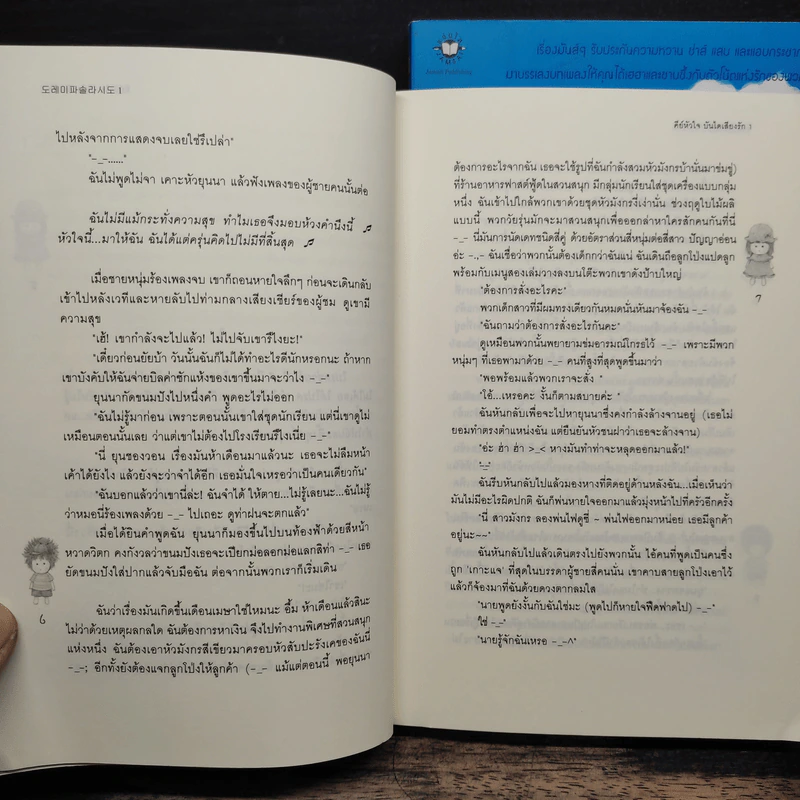 เรื่องมันส์ๆ รับประกันความหวาน ซ่าส์ แสบ และแอบกระชาก
มาบรรเลงบทเพลงให้คุณได้เฮฮาและซาบซึ้งกับตัวโน้ตแห่งรักของพวก
도레미파솔라시도 1
ไปหลังจากการแสดงจบเลยใช่รึเปล่า"
"-_-......"
ฉันไม่พูดไม่จา เคาะหัวยุนนา แล้วฟังเพลงของผู้ชายคนนั้นต่อ
ฉันไม่มีแม้กระทั่งความสุข ทำไมเธอจึงมอบห้วงคำนึงนี้ ♬
หัวใจนี้...มาให้ฉัน ฉันได้แต่ครุ่นคิดไปไม่มีที่สิ้นสุด ♬
เมื่อชายหนุ่มร้องเพลงจบ เขาก็ถอนหายใจลึกๆ ก่อนจะเดินกลับ
เข้าไปหลังเวทีและหายลับไปท่ามกลางเสียงเชียร์ของผู้ชม ดูเขามี
ความสุข
"เฮ้! เขากำลังจะไปแล้ว! ไม่ไปจับเขารึไงยะ!"
"เดี๋ยวก่อนยัยบ้า วันนั้นฉันก็ไม่ได้ทำอะไรดีนักหรอกนะ ถ้าหาก
เขาบังคับให้ฉันจ่ายบิลค่าซักแห้งของเขาขึ้นมาจะว่าไง -_-"
ยุนนากัดขนมปังไปหนึ่งคำ พูดอะไรไม่ออก
"ฉันไม่รู้มาก่อน เพราะตอนนั้นเขาใส่ชุดนักเรียน แต่นี่เขาดูไม่
เหมือนตอนนั้นเลย ว่าแต่เขาไม่ต้องไปโรงเรียนรึไงเนี่ย -_-"
"นี่ ยุนของวอน เรื่องมันห้าเดือนมาแล้วนะ เธอจะไม่ลืมหน้า
เค้าได้ยังไง แล้วยังจะว่าจำได้อีก เธอมั่นใจเหรอว่าเป็นคนเดียวกัน"
"ฉันบอกแล้วว่าเขานี่ล่ะ! ฉันจำได้ ให้ตาย...ไม่รู้เลยนะ...ฉันไม่รู้
ว่าหมอนี่ร้องเพลงด้วย -_- ไปเถอะ ดูท่าฝนจะตกแล้ว"
เมื่อได้ยินคำพูดฉัน ยุนนาก็มองขึ้นไปบนท้องฟ้าด้วยสีหน้า
หวาดวิตก คงกังวลว่าขนมปังเธอจะเปียกม่อลอกม่อแลกสิท่า -_- เธอ
ยัดขนมปังใส่ปากแล้วจับมือฉัน ต่อจากนั้นพวกเราก็เริ่มเดิน
ฉันว่าเรื่องมันเกิดขึ้นเดือนเมษาใช่ไหมนะ อื้ม ห้าเดือนแล้วสินะ
ไม่ว่าด้วยเหตุผลกลใด ฉันต้องการหาเงิน จึงไปทำงานพิเศษที่สวนสนุก
แห่งหนึ่ง ฉันต้องเอาหัวมังกรสีเขียวมาครอบหัวสับปะรังเคของฉันนี่
-_-; อีกทั้งยังต้องแจกลูกโป่งให้ลูกค้า (-_- แม้แต่ตอนนี้ พอยุนนา
6
คีย์หัวใจ บันไดเสียงรัก 1
ต้องการอะไรจากฉัน เธอจะใช้รูปที่ฉันกำลังสวมหัวมังกรบ้านั่นมาข่มขู่)
ที่ร้านอาหารฟาสต์ฟู้ดในสวนสนุก มีกลุ่มนักเรียนใส่ชุดเครื่องแบบกลุ่ม
หนึ่ง ฉันเข้าไปใกล้พวกเขาด้วยชุดหัวมังกรงี่เง่านั่น ช่วงฤดูใบไม้ผลิ
แบบนี้ พวกวัยรุ่นมักจะมาสวนสนุกเพื่อออกล่าหาใครสักคนกันที่นี่
-_- นี่มันการนัดเดทชนิดสี่คู่ ด้วยอัตราส่วนสี่หนุ่มต่อสี่สาว ปัญญาอ่อน
อ่ะ -,.- ฉันเชื่อว่าพวกนั้นต้องเด็กกว่าฉันแน่ ฉันเดินถือลูกโป่งแปดลูก
พร้อมกับเมนูสองเล่มวางลงบนโต๊ะพวกเขาดังป้าบใหญ่
"ต้องการสั่งอะไรคะ"
พวกเด็กสาวที่มีผมทรงเดียวกันหมดนั่นหันมาจ้องฉัน -_-
"ฉันถามว่าต้องการสั่งอะไรกันคะ"
ดูเหมือนพวกนั้นพยายามข่มอารมณ์โกรธไว้ -_- เพราะมีพวก
หนุ่มๆ ที่เธอพามาด้วย -_- คนที่สูงที่สุดพูดขึ้นมาว่า
"พอพร้อมแล้วพวกเราจะสั่ง "
"โอ้...เหรอคะ งั้นก็ตามสบายค่ะ "
ฉันหันกลับเพื่อจะไปหายุนนาซึ่งคงกำลังล้างจานอยู่ (เธอไม่
ยอมทำตรงตำแหน่งฉัน แต่ยืนยันหัวชนฝาว่าเธอจะล้างจาน)
"อ่ะ ฮ่า ฮ่า >_< หางมันทำท่าจะหลุดออกมาแล้ว!"
"-_-"
ฉันรีบหันกลับไปแล้วมองหางที่ติดอยู่ด้านหลังฉัน...เมื่อเห็นว่า
มันไม่มีอะไรผิดปกติ ฉันก็พ่นหายใจออกมาแล้วมุ่งหน้าไปที่ครัวอีกครั้ง
"นี่ สาวมังกร ลองพ่นไฟดูซี่ – พ่นไฟออกมาหน่อย เธอมีลูกค้า
อยู่นะ~~"
ฉันหันกลับไปแล้วเดินตรงไปยังพวกนั้น ไอ้คนที่พูดเป็นคนซึ่ง
ถูก 'เกาะแจ' ที่สุดในบรรดาผู้ชายสี่คนนั่น เขาคาบสายลูกโป่งเอาไว้
แล้วก็จ้องมาที่ฉันด้วยดวงตากลมใส
"นายพูดยังงั้นกับฉันใช่มะ (พูดไปก็หายใจฟืดฟาดไป) -_-"
"ใช่ -_-"
"นายรู้จักฉันเหรอ -_-^"
7